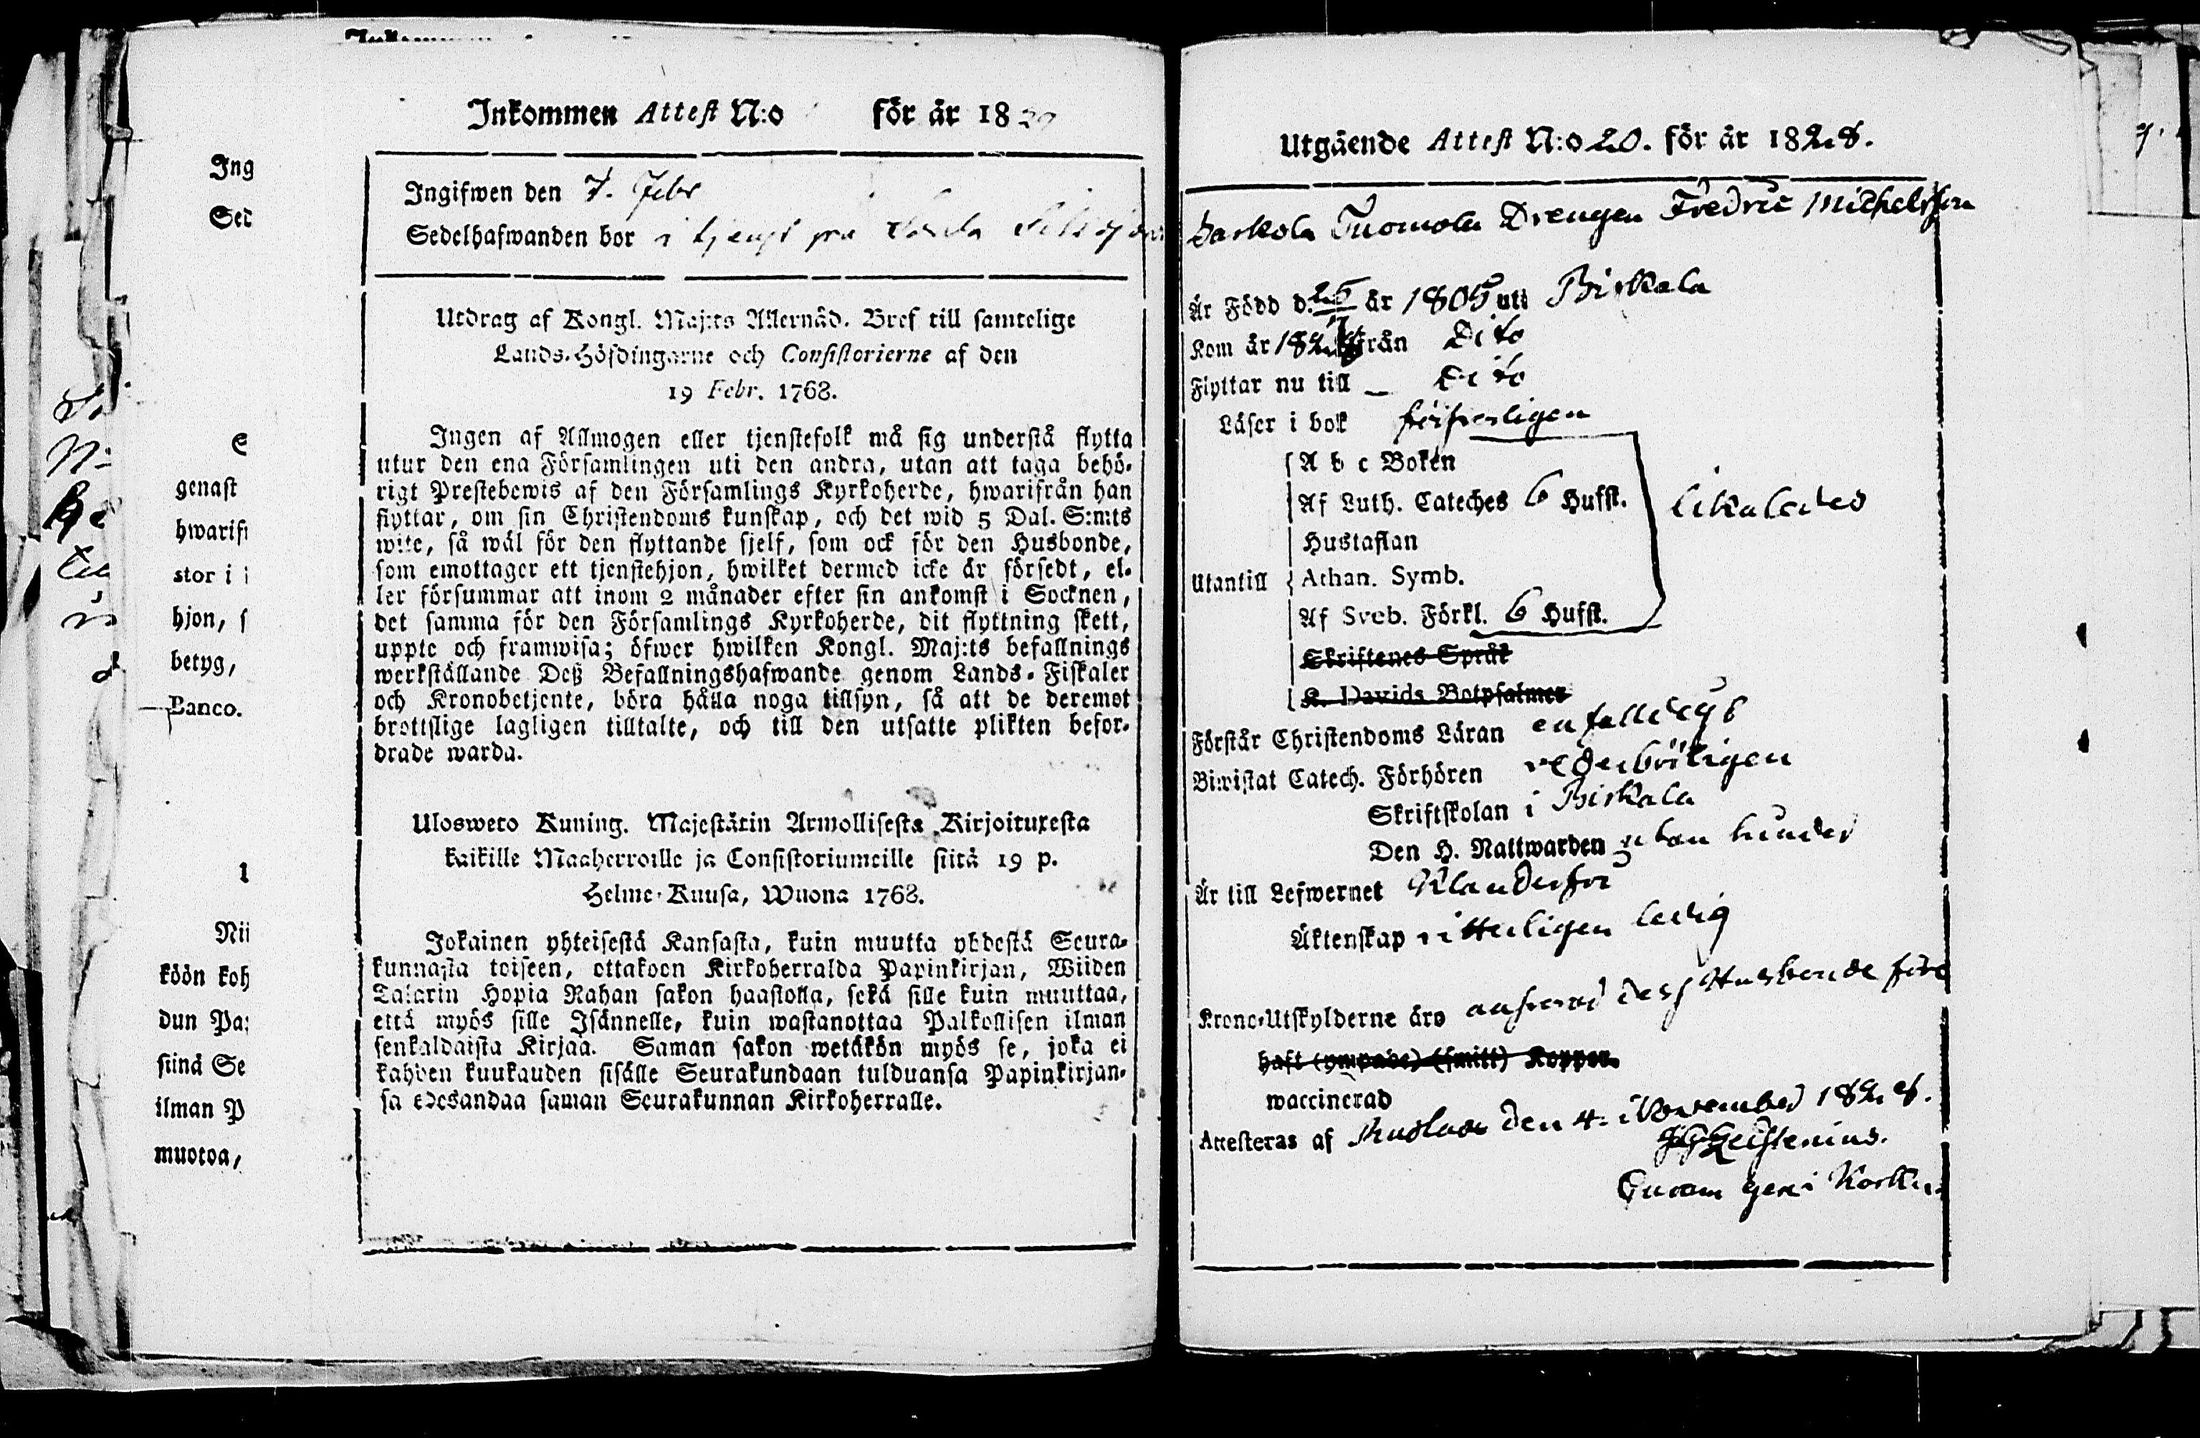 Inkommen Attest N:o för år 1829
Ingifwen den 7. Febr
Sedelhafwanden bor i tjenst på
Utdrag af Kongl. Maj:ts Allernåd. Bref till samtelige
Lands-Höfdingarne och Consistorierne af den
19 Febr. 1768.
Ingen af Allmogen eller tjenstefolk må sig understå flytta
utur den ena Församlingen uti den andra, utan att taga behö-
rigt Prestebewis af den Församlings Kyrkoherde, hwarifrån han
flyttar, om sin Christendoms kunskap, och det wid 5 Dal. S:mts
wite, så wäl för den flyttande sjelf, som ock för den Husbonde,
som emottager ett tjenstehjon, hwilket dermed icke är försedt, el-
ler försummar att inom 2 månader efter sin ankomst i Socknen,
det samma för den Församlings Kyrkoherde, dit flyttning skett,
uppte och framwisa; öfwer hwilken Kongl. Maj:ts befallnings
werkställande Deß Befallningshafwande genom Lands-Fiskaler
och Kronobetjente, böra hålla noga tillsyn, så att de deremot
brottslige lagligen tilltalte, och till den utsatte plikten befor-
drade warda.
Ulosweto Kuning. Majestätin Armollisesta Kirjoituxesta
kaikille Maaherroille ja Consistoriumeille siitä 19 p.
Helme-Kuusa, Wuona 1768.
Jokainen yhteisestä Kansasta, kuin muutta yhdestä Seura-
kunnasta toiseen, ottakoon Kirkoherralda Papinkirjan, Wiiden
Talarin Hopia Rahan sakon haastolla, sekä sille kuin muuttaa,
että myös sille Isännelle, kuin wastanottaa Palkollisen ilman
senkaldaista Kirjaa. Saman sakon wetäkön myös se, joka ei
kahden kuukauden sisälle Seurakundaan tulduansa Papinkirjan-
sa edesandaa saman Seurakunnan Kirkoherralle.
Ing
Sed
genast
hwarifr
stor i i
hjon, s
betyg,
Banco.
Nii
köön koh
dun Pa
siinä Se
ilman P
muotoa,
Utgående Attest N:o 20. för år 1828.
Tuomola Drengen Fredric Michelsson
Är Född d. 25 år 1805 uti Birkala
Kom år 182 från Dito
Flyttar nu till — Dito
Läser i bok försvarligen
A b c Boken
Af Luth. Cateches 6 Hufst. likaledes
Hustaflan
Utantill Athan. Symb.
Af Sveb. Förkl. 6 Hufst.
Skriftenes Språk
K. Davids Botpsalmer
Förstår Christendoms Läran enfalldigt
Biwistat Catech. Förhören vederbörligen
Skriftskolan i Birkala
Den H. Nattwarden utan hinder
Är till Lefwernet oklanderfri
Äktenskap witterligen ledig
Krono-Utskylderne äro ansvarar dess Husbonde före
haft (ympade) (smitt) Koppor.
waccinerad
Attesteras af den 4. November 1828.